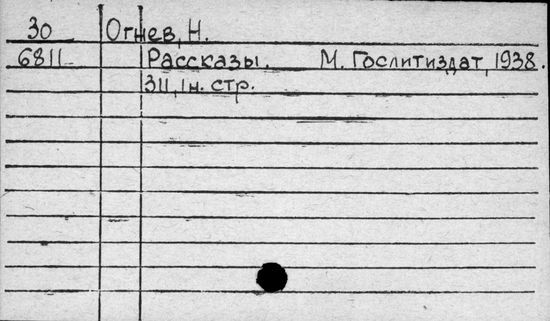 30 Огнев, Н.
6811 Рассказы. М. Гослитиздат, 1938.
311, 1н. стр.